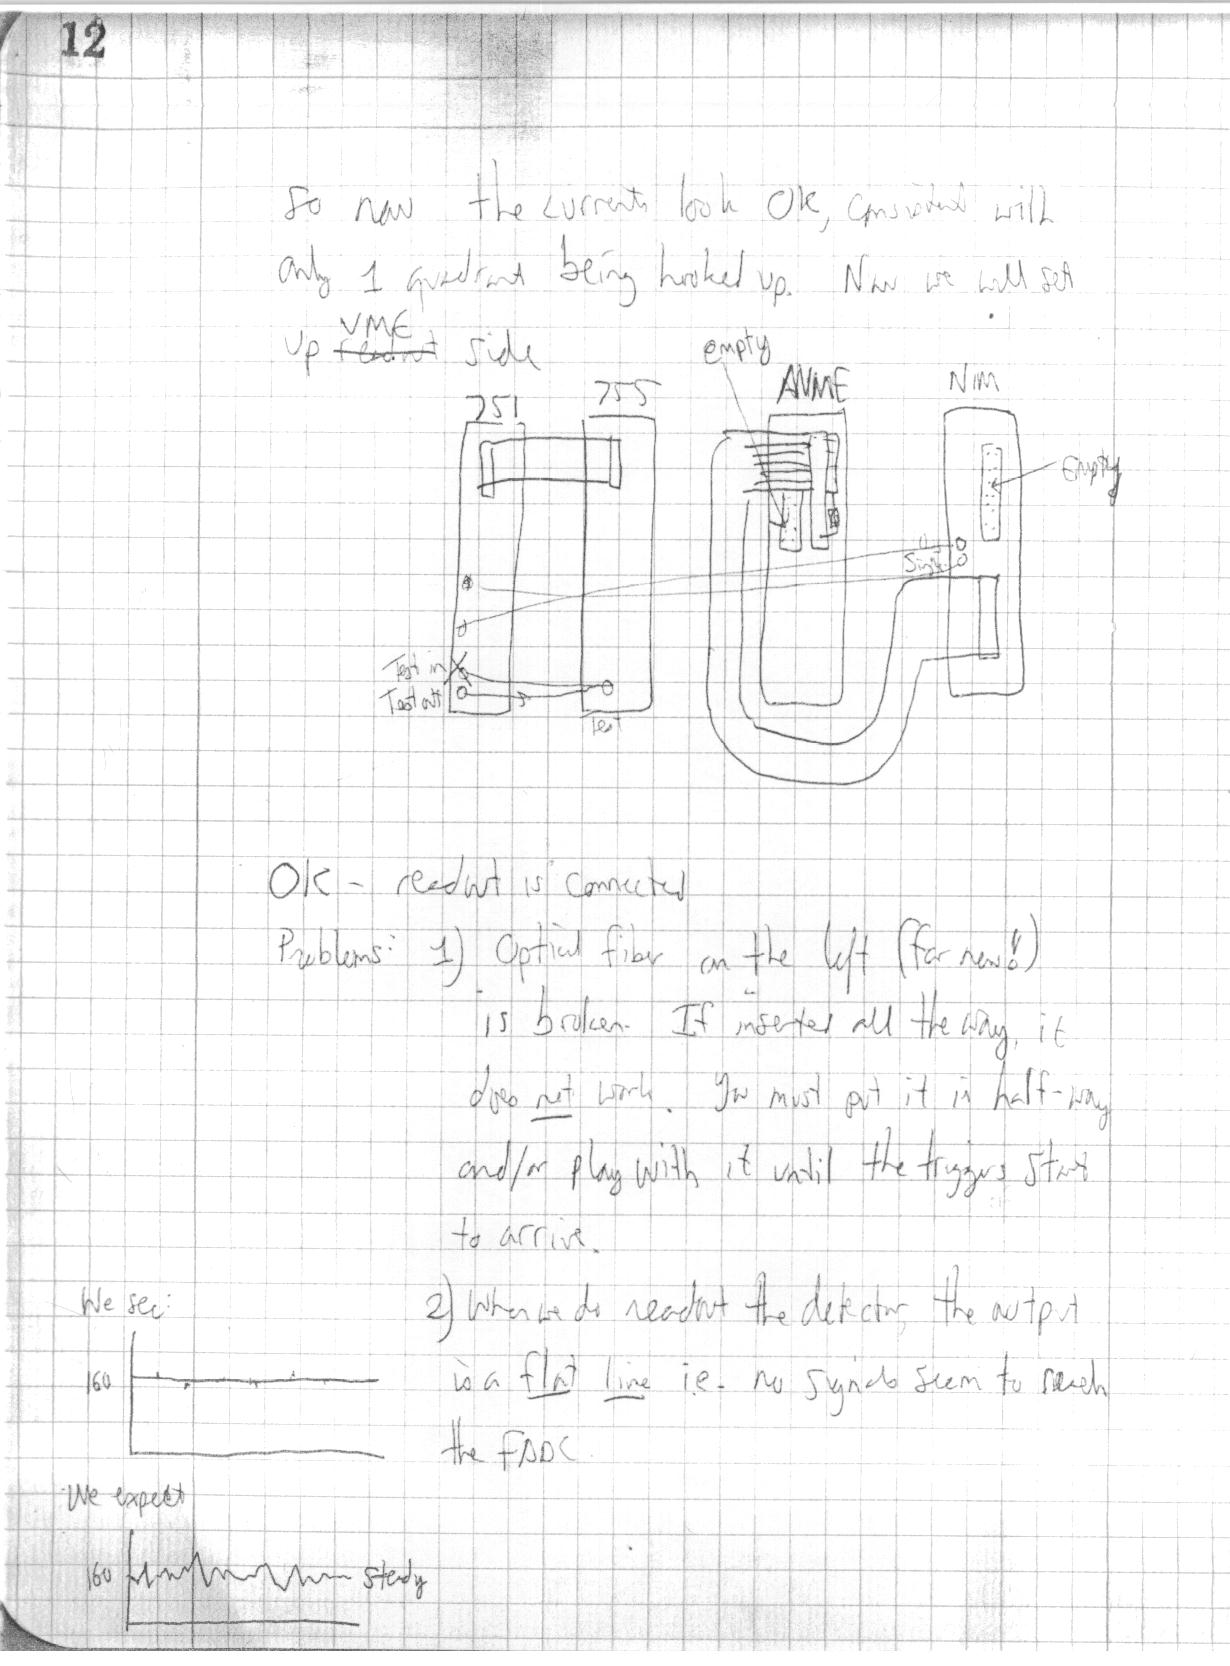 12
So now the currents look OK, consistent with
only 1 quadrant being hooked up. Now we will set
VME
up readout side
empty
751
755
AVME
NIM
Empty
Test in
Test out
Test
OK - readout is connected
Problems: 1) Optical fiber on the left (for now!)
is broken. If inserted all the way, it
does not work. You must put it in half-way
and/or play with it until the triggers start
to arrive.
We see:
2) When we do readout the detector, the output
160
is a flat line i.e. no signals seem to reach
the FADC.
We expect
160
steady